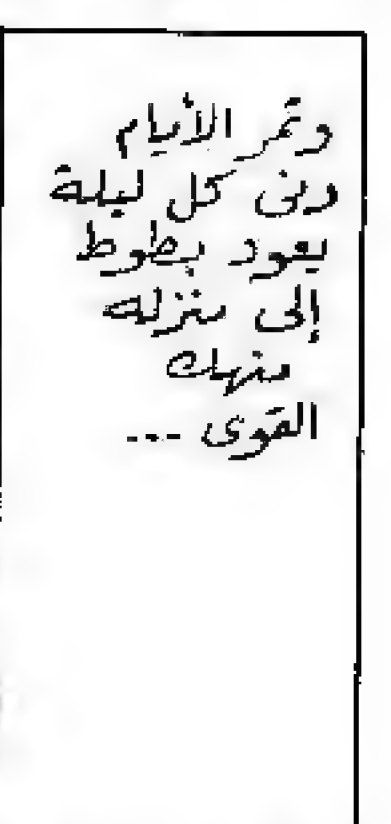 وتمر الأيام
وفى كل ليلة
يعود بطوط
إلى منزله
منهك
القوى ...